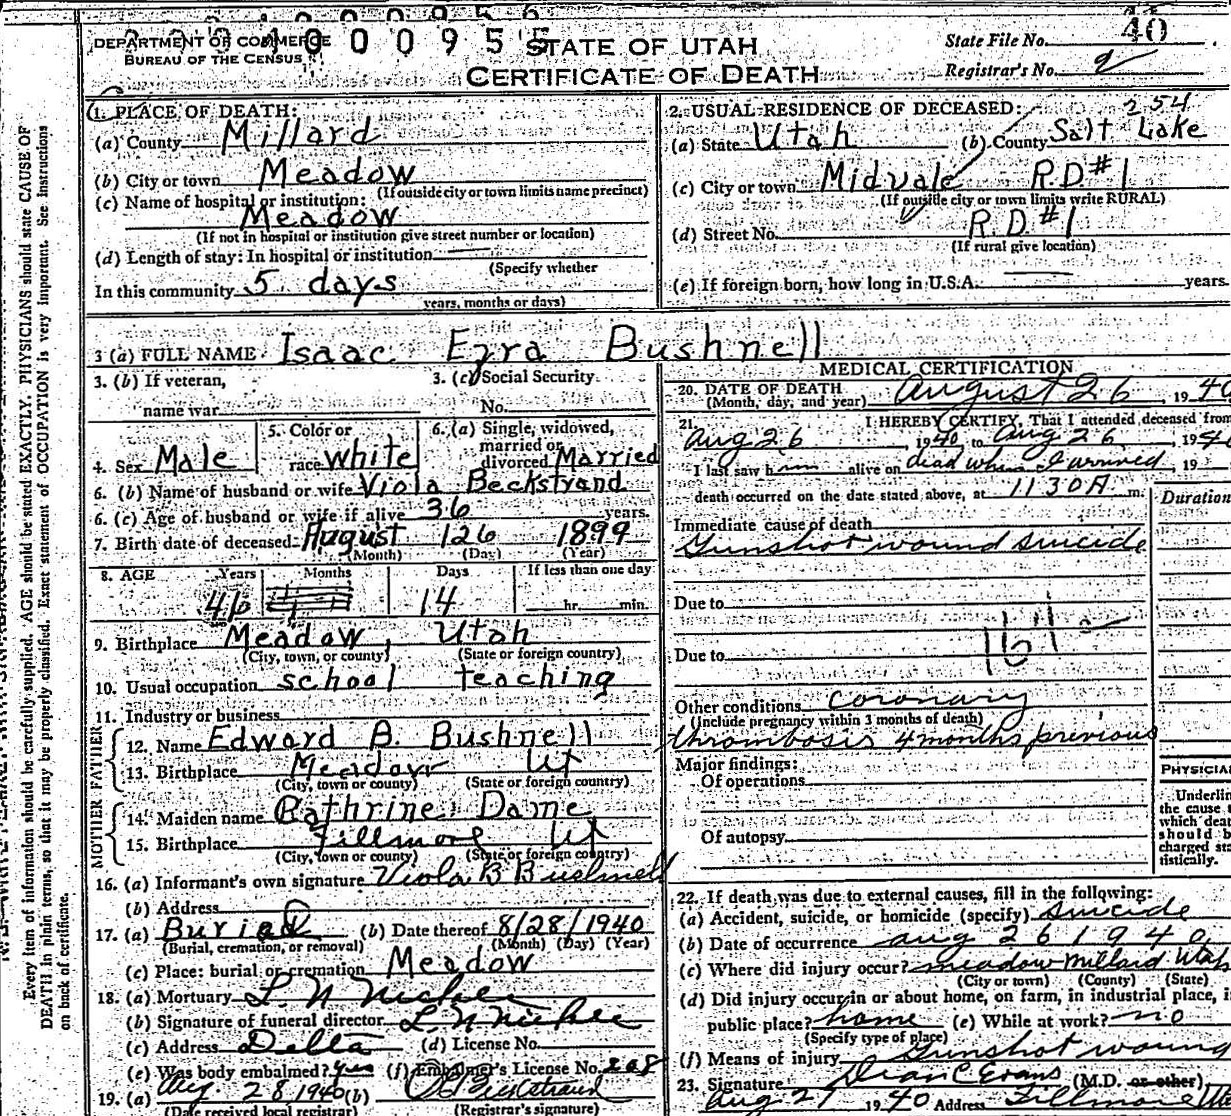 DEPARTMENT OF COMMERCE
BUREAU OF THE CENSUS
STATE OF UTAH
CERTIFICATE OF DEATH
State File No. 40
Registrar's No. 9
1. PLACE OF DEATH:
(a) County Millard
(b) City or town Meadow
(If outside city or town limits name precinct)
(c) Name of hospital or institution:
Meadow
(If not in hospital or institution give street number or location)
(d) Length of stay: In hospital or institution
(Specify whether
In this community 5 days
years, months or days)
2. USUAL RESIDENCE OF DECEASED: 254
(a) State Utah (b) County Salt Lake
(c) City or town Midvale R.D #1
(If outside city or town limits write RURAL)
(d) Street No. R.D. #1
(If rural give location)
(e) If foreign born, how long in U.S.A. years.
3 (a) FULL NAME Isaac Ezra Bushnell
3. (b) If veteran,
name war
3. (c) Social Security
No.
4. Sex Male
5. Color or
race white
6. (a) Single, widowed,
married or
divorced Married
6. (b) Name of husband or wife Viola Beckstrand
6. (c) Age of husband or wife if alive 36 years.
7. Birth date of deceased August 126 1899
(Month) (Day) (Year)
8. AGE Years Months Days If less than one day
46 14 hr. min.
9. Birthplace Meadow, Utah
(City, town, or county) (State or foreign country)
10. Usual occupation school teaching
11. Industry or business
FATHER
12. Name Edward B. Bushnell
13. Birthplace Meadow Ut
(City, town or county) (State or foreign country)
MOTHER
14. Maiden name Cathrine Dame
15. Birthplace Fillmore Ut
(City, town or county) (State or foreign country)
16. (a) Informant's own signature Viola B Bushnell
(b) Address
17. (a) Burial (b) Date thereof 8/28/1940
(Burial, cremation, or removal) (Month) (Day) (Year)
(c) Place: burial or cremation Meadow
18. (a) Mortuary L. N Nickle
(b) Signature of funeral director L N Nickle
(c) Address Delta (d) License No.
(e) Was body embalmed? yes (f) Embalmer's License No. 208
19. (a) Aug. 28, 1940 (b)
(Date received local registrar) (Registrar's signature)
MEDICAL CERTIFICATION
20. DATE OF DEATH August 26, 1940
(Month, day, and year)
21. I HEREBY CERTIFY, That I attended deceased from
Aug 26, 1940 to Aug 26, 1940
I last saw him alive on dead when I arrived, 19
death occurred on the date stated above, at 1130A m.
Duration
Immediate cause of death
Gunshot wound suicide
Due to
Due to
Other conditions coronary
(Include pregnancy within 3 months of death)
thrombosis 4 months previous
Major findings:
Of operations
Of autopsy
PHYSICIAN
Underline
the cause
which death
should b
charged sta
tistically.
22. If death was due to external causes, fill in the following:
(a) Accident, suicide, or homicide (specify) suicide
(b) Date of occurrence aug 26 1940
(c) Where did injury occur? meadow Millard Utah
(City or town) (County) (State)
(d) Did injury occur in or about home, on farm, in industrial place, i
public place? home (e) While at work? no
(Specify type of place)
(f) Means of injury Gunshot wound
23. Signature Dean C Evans (M.D. or other)
aug 27 1940 Address Fillmore
Every item of information should be carefully supplied. AGE should be stated EXACTLY. PHYSICIANS should state CAUSE OF
DEATH in plain terms, so that it may be properly classified. Exact statement of OCCUPATION is very important. See Instructions
on back of certificate.